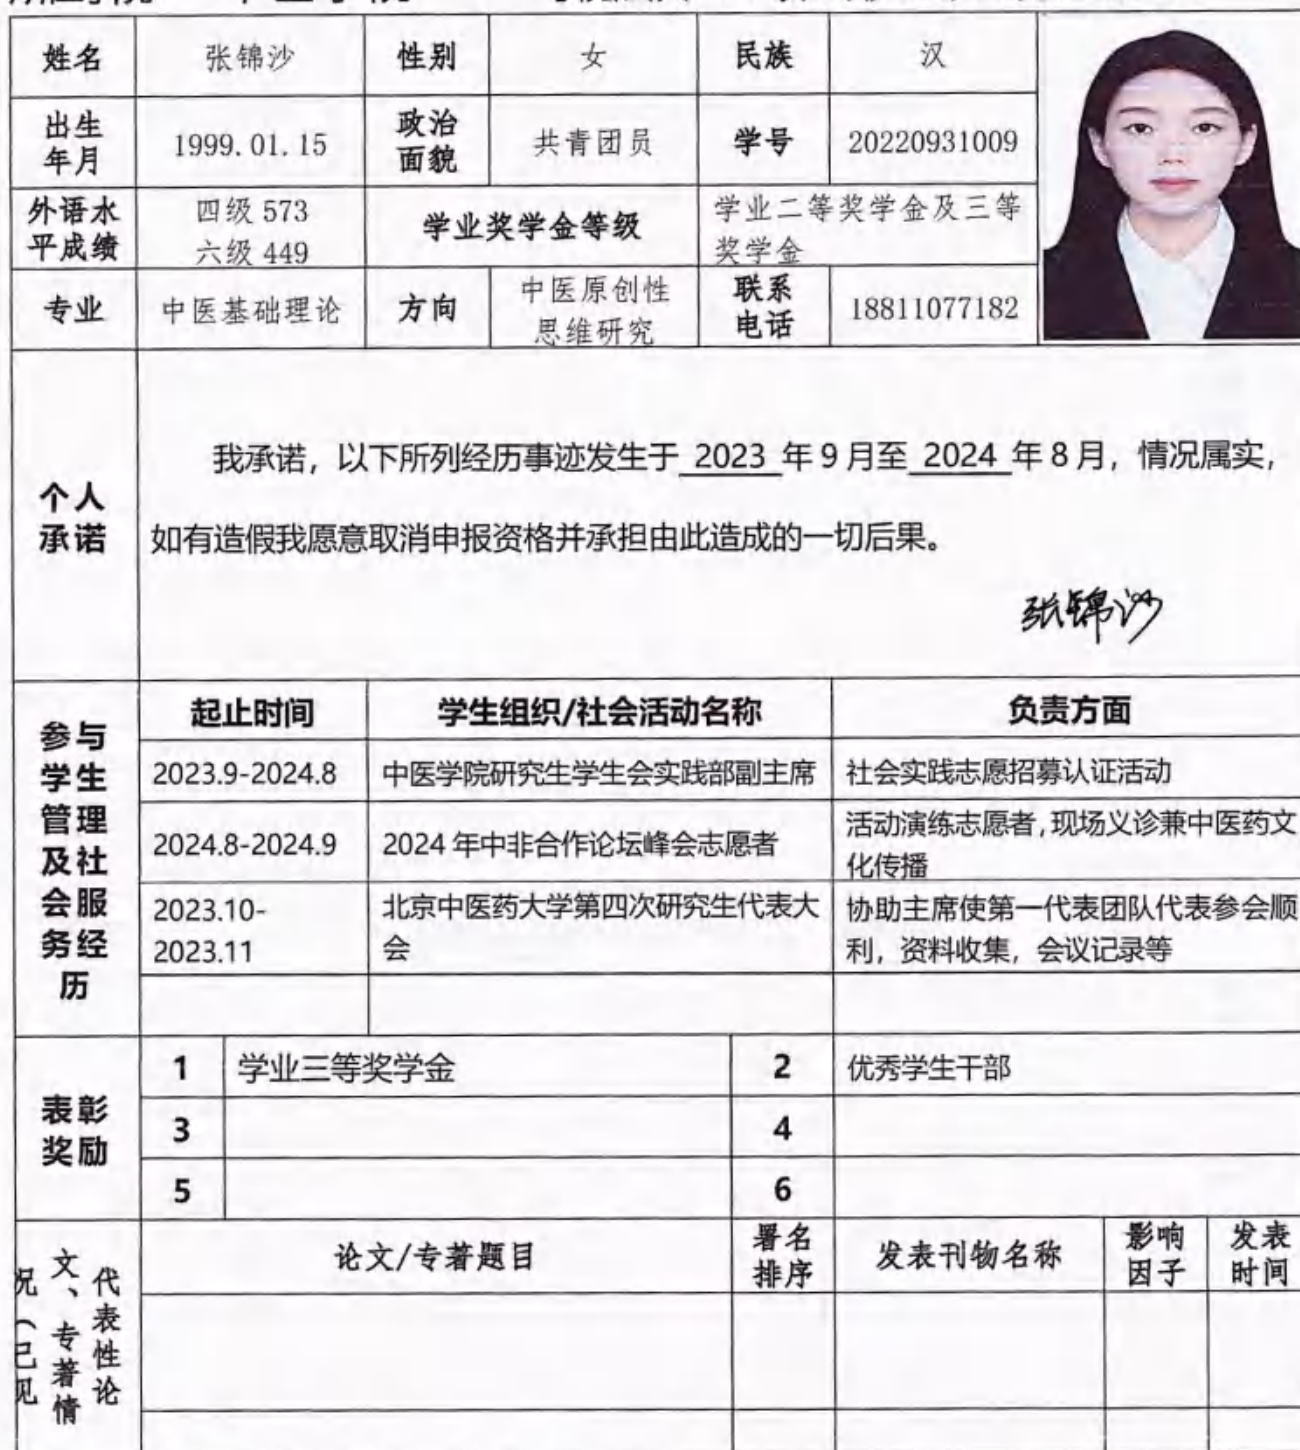 姓名 张锦沙 性别 女 民族 汉
出生年月 1999.01.15 政治面貌 共青团员 学号 20220931009
外语水平成绩 四级 573 六级 449 学业奖学金等级 学业二等奖学金及三等奖学金
专业 中医基础理论 方向 中医原创性思维研究 联系电话 18811077182
个人承诺
我承诺，以下所列经历事迹发生于 2023 年 9 月至 2024 年 8 月，情况属实，
如有造假我愿意取消申报资格并承担由此造成的一切后果。
张锦沙
参与学生管理及社会服务经历
起止时间 学生组织/社会活动名称 负责方面
2023.9-2024.8 中医学院研究生学生会实践部副主席 社会实践志愿招募认证活动
2024.8-2024.9 2024 年中非合作论坛峰会志愿者 活动演练志愿者，现场义诊兼中医药文化传播
2023.10-2023.11 北京中医药大学第四次研究生代表大会 协助主席使第一代表团队代表参会顺利，资料收集，会议记录等
表彰奖励
1 学业三等奖学金 2 优秀学生干部
3 4
5 6
代表性论文、专著情况（已见
论文/专著题目 署名排序 发表刊物名称 影响因子 发表时间